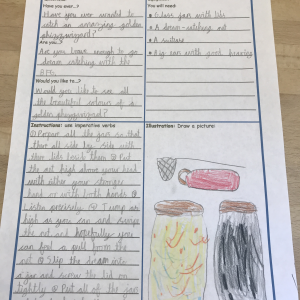 Have you ever...?
Have you ever wanted to
catch an amazing golden
phizzwizard?
Are you...?
Are you brave enough to go
dream catching with the
BFG
Would you like to...?
Would you like to see all
the beautiful colours of a
golden phizzwizard?
You will need:
Glass jar with lids
A dream-catching net
A suitcase
Big ears with good hearing
Instructions: use imperative verbs
① Prepare all the jars so that
their all side by side with
their lids beside them ② Put
the net high above your head
with either your stronger
hand or with both hands ③
Listen precisely ④ Jump as
high as you can and swipe
the net and hopefully you
can feel a pull from the
net ⑤ Slip the dream into
a jar and screw the lid on
tightly ⑥ Put all of the jars
Illustration: Draw a picture: